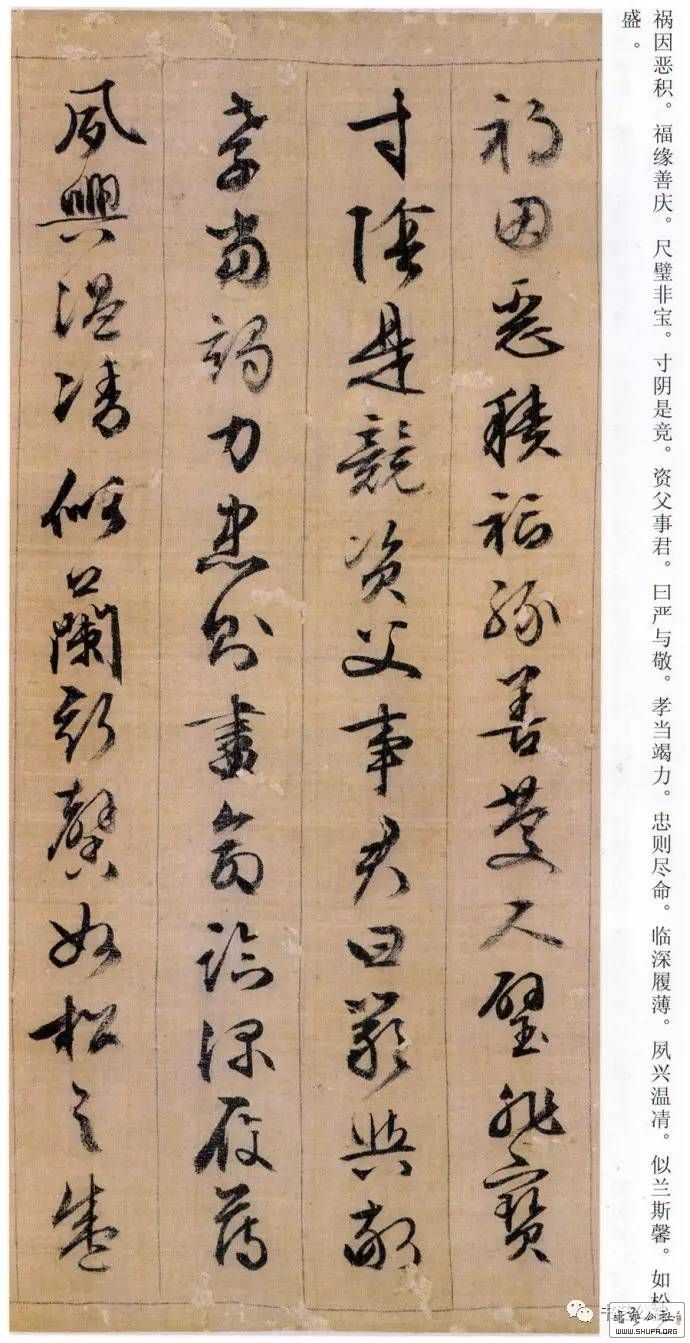 祸因恶积。福缘善庆。尺璧非宝。寸阴是竞。资父事君。曰严与敬。孝当竭力。忠则尽命。临深履薄。夙兴温凊。似兰斯馨。如松
盛。
禍因惡積福緣善慶尺璧非寶
寸陰是競資父事君曰嚴與敬
孝當竭力忠則盡命臨深履薄
夙興温凊似蘭斯馨如松之盛
WWW.SHUFA.ORG